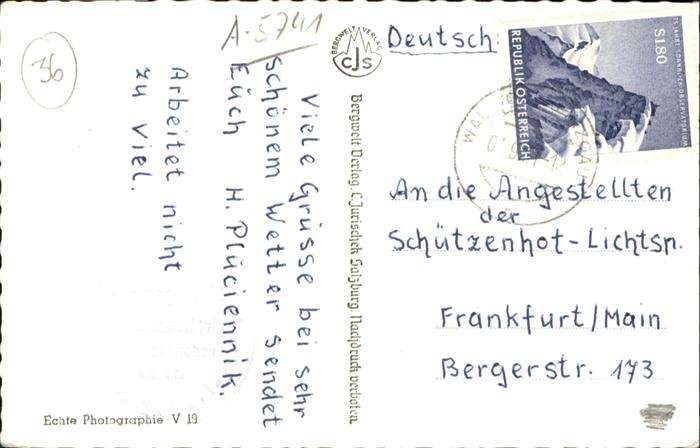 36
A-5741
Viele Grüsse bei sehr
schönem Wetter sendet
Euch H. Plüciennik.
Arbeitet nicht
zu viel.
Echte Photographie V 19
BERGWELT VERLAG
CJS
Bergwelt Verlag, C. Jurischek Salzburg. Nachdruck verboten
Deutsch.
75 JAHRE SONNBLICK-OBSERVATORIUM
S 1.80
REPUBLIK ÖSTERREICH
An die Angestellten
der
Schützenhof-Lichtsp.
Frankfurt/Main
Bergerstr. 173